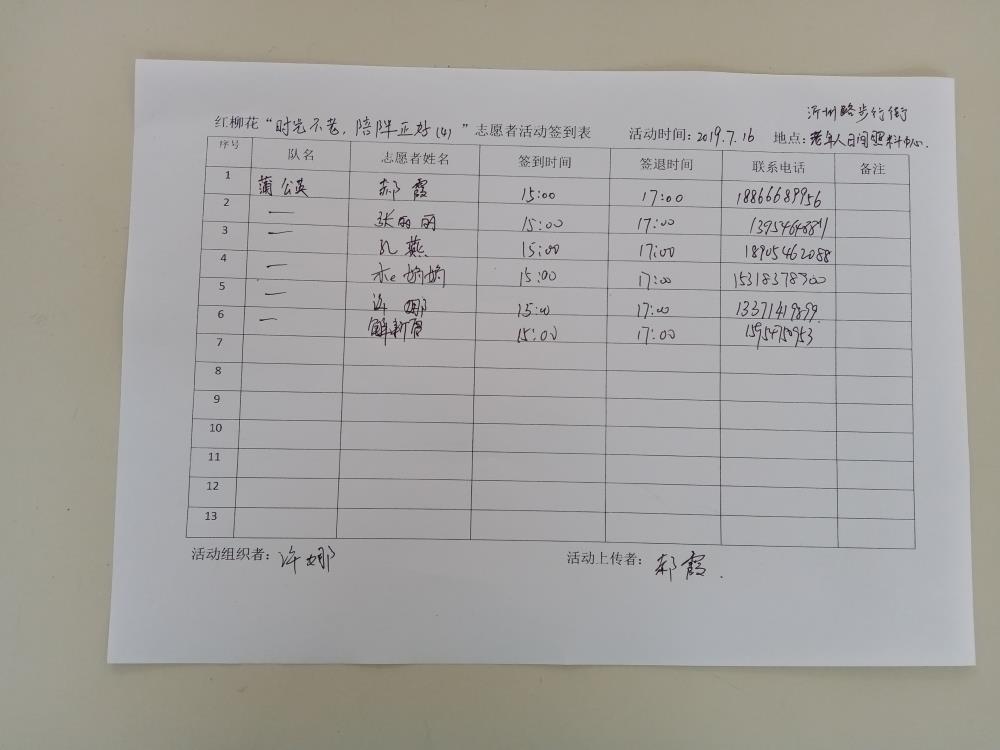 沂州路步行街
红柳花“时光不老，陪伴正好(4)”志愿者活动签到表 活动时间：2019.7.16 地点：老年人日间照料中心.
序号 队名 志愿者姓名 签到时间 签退时间 联系电话 备注
1 蒲公英 郝霞 15:00 17:00 18866689956
2 一 张丽丽 15:00 17:00
3 一 孔燕 15:00 17:00 18905462088
4 一 娟娟 15:00 17:00 15318378300
5 一 许娜 15:00 17:00 13371419899
6 一 解新 15:00 17:00
7
8
9
10
11
12
13
活动组织者：许娜 活动上传者：郝霞.